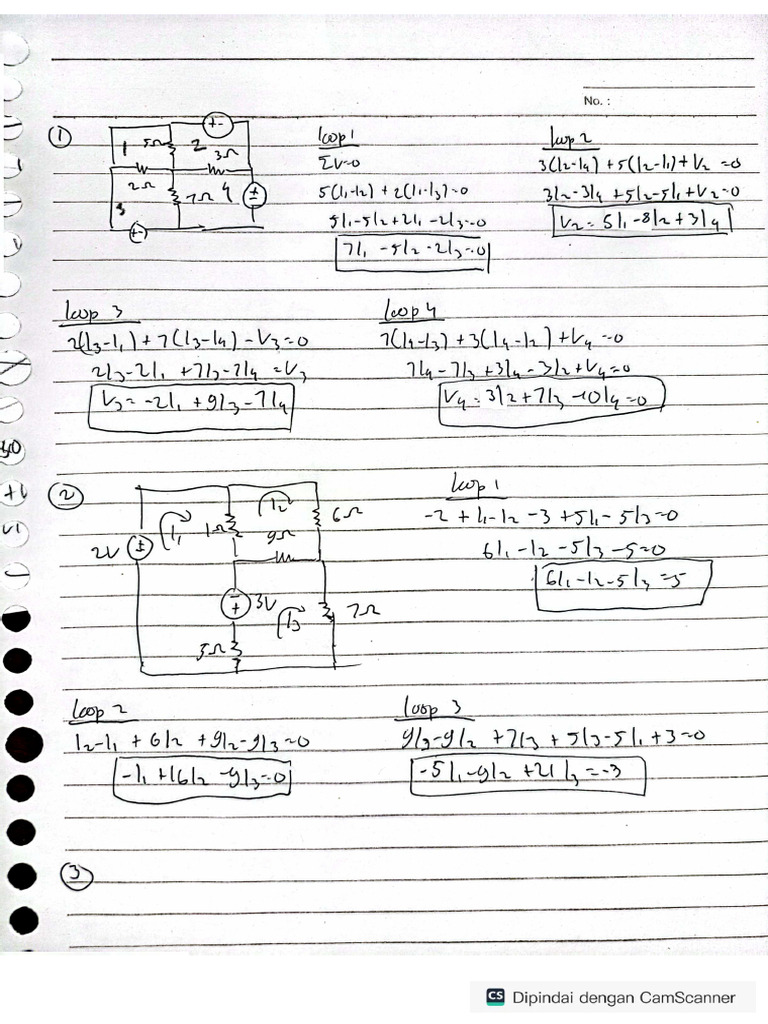 No. :
①
1
5Ω
2
+-
3Ω
2Ω
7Ω
4
±
3
+-
loop 1
ΣV=0
5(I₁-I₂) + 2(I₁-I₃)=0
5I₁-5I₂+2I₁-2I₃=0
7I₁-5I₂-2I₃=0
loop 2
3(I₂-I₄)+5(I₂-I₁)+V₂=0
3I₂-3I₄+5I₂-5I₁+V₂=0
V₂=5I₁-8I₂+3I₄
loop 3
2(I₃-I₁)+7(I₃-I₄)-V₃=0
2I₃-2I₁+7I₃-7I₄=V₃
V₃=-2I₁+9I₃-7I₄
loop 4
7(I₄-I₃)+3(I₄-I₂)+V₄=0
7I₄-7I₃+3I₄-3I₂+V₄=0
V₄=3I₂+7I₃-10I₄=0
②
2V
±
I₁
1Ω
I₂
6Ω
9Ω
-
+
3V
I₃
7Ω
5Ω
loop 1
-2+I₁-I₂-3+5I₁-5I₃=0
6I₁-I₂-5I₃-5=0
6I₁-I₂-5I₃=5
loop 2
I₂-I₁+6I₂+9I₂-9I₃=0
-I₁+16I₂-9I₃=0
loop 3
9I₃-9I₂+7I₃+5I₃-5I₁+3=0
-5I₁-9I₂+21I₃=-3
③
CS Dipindai dengan CamScanner